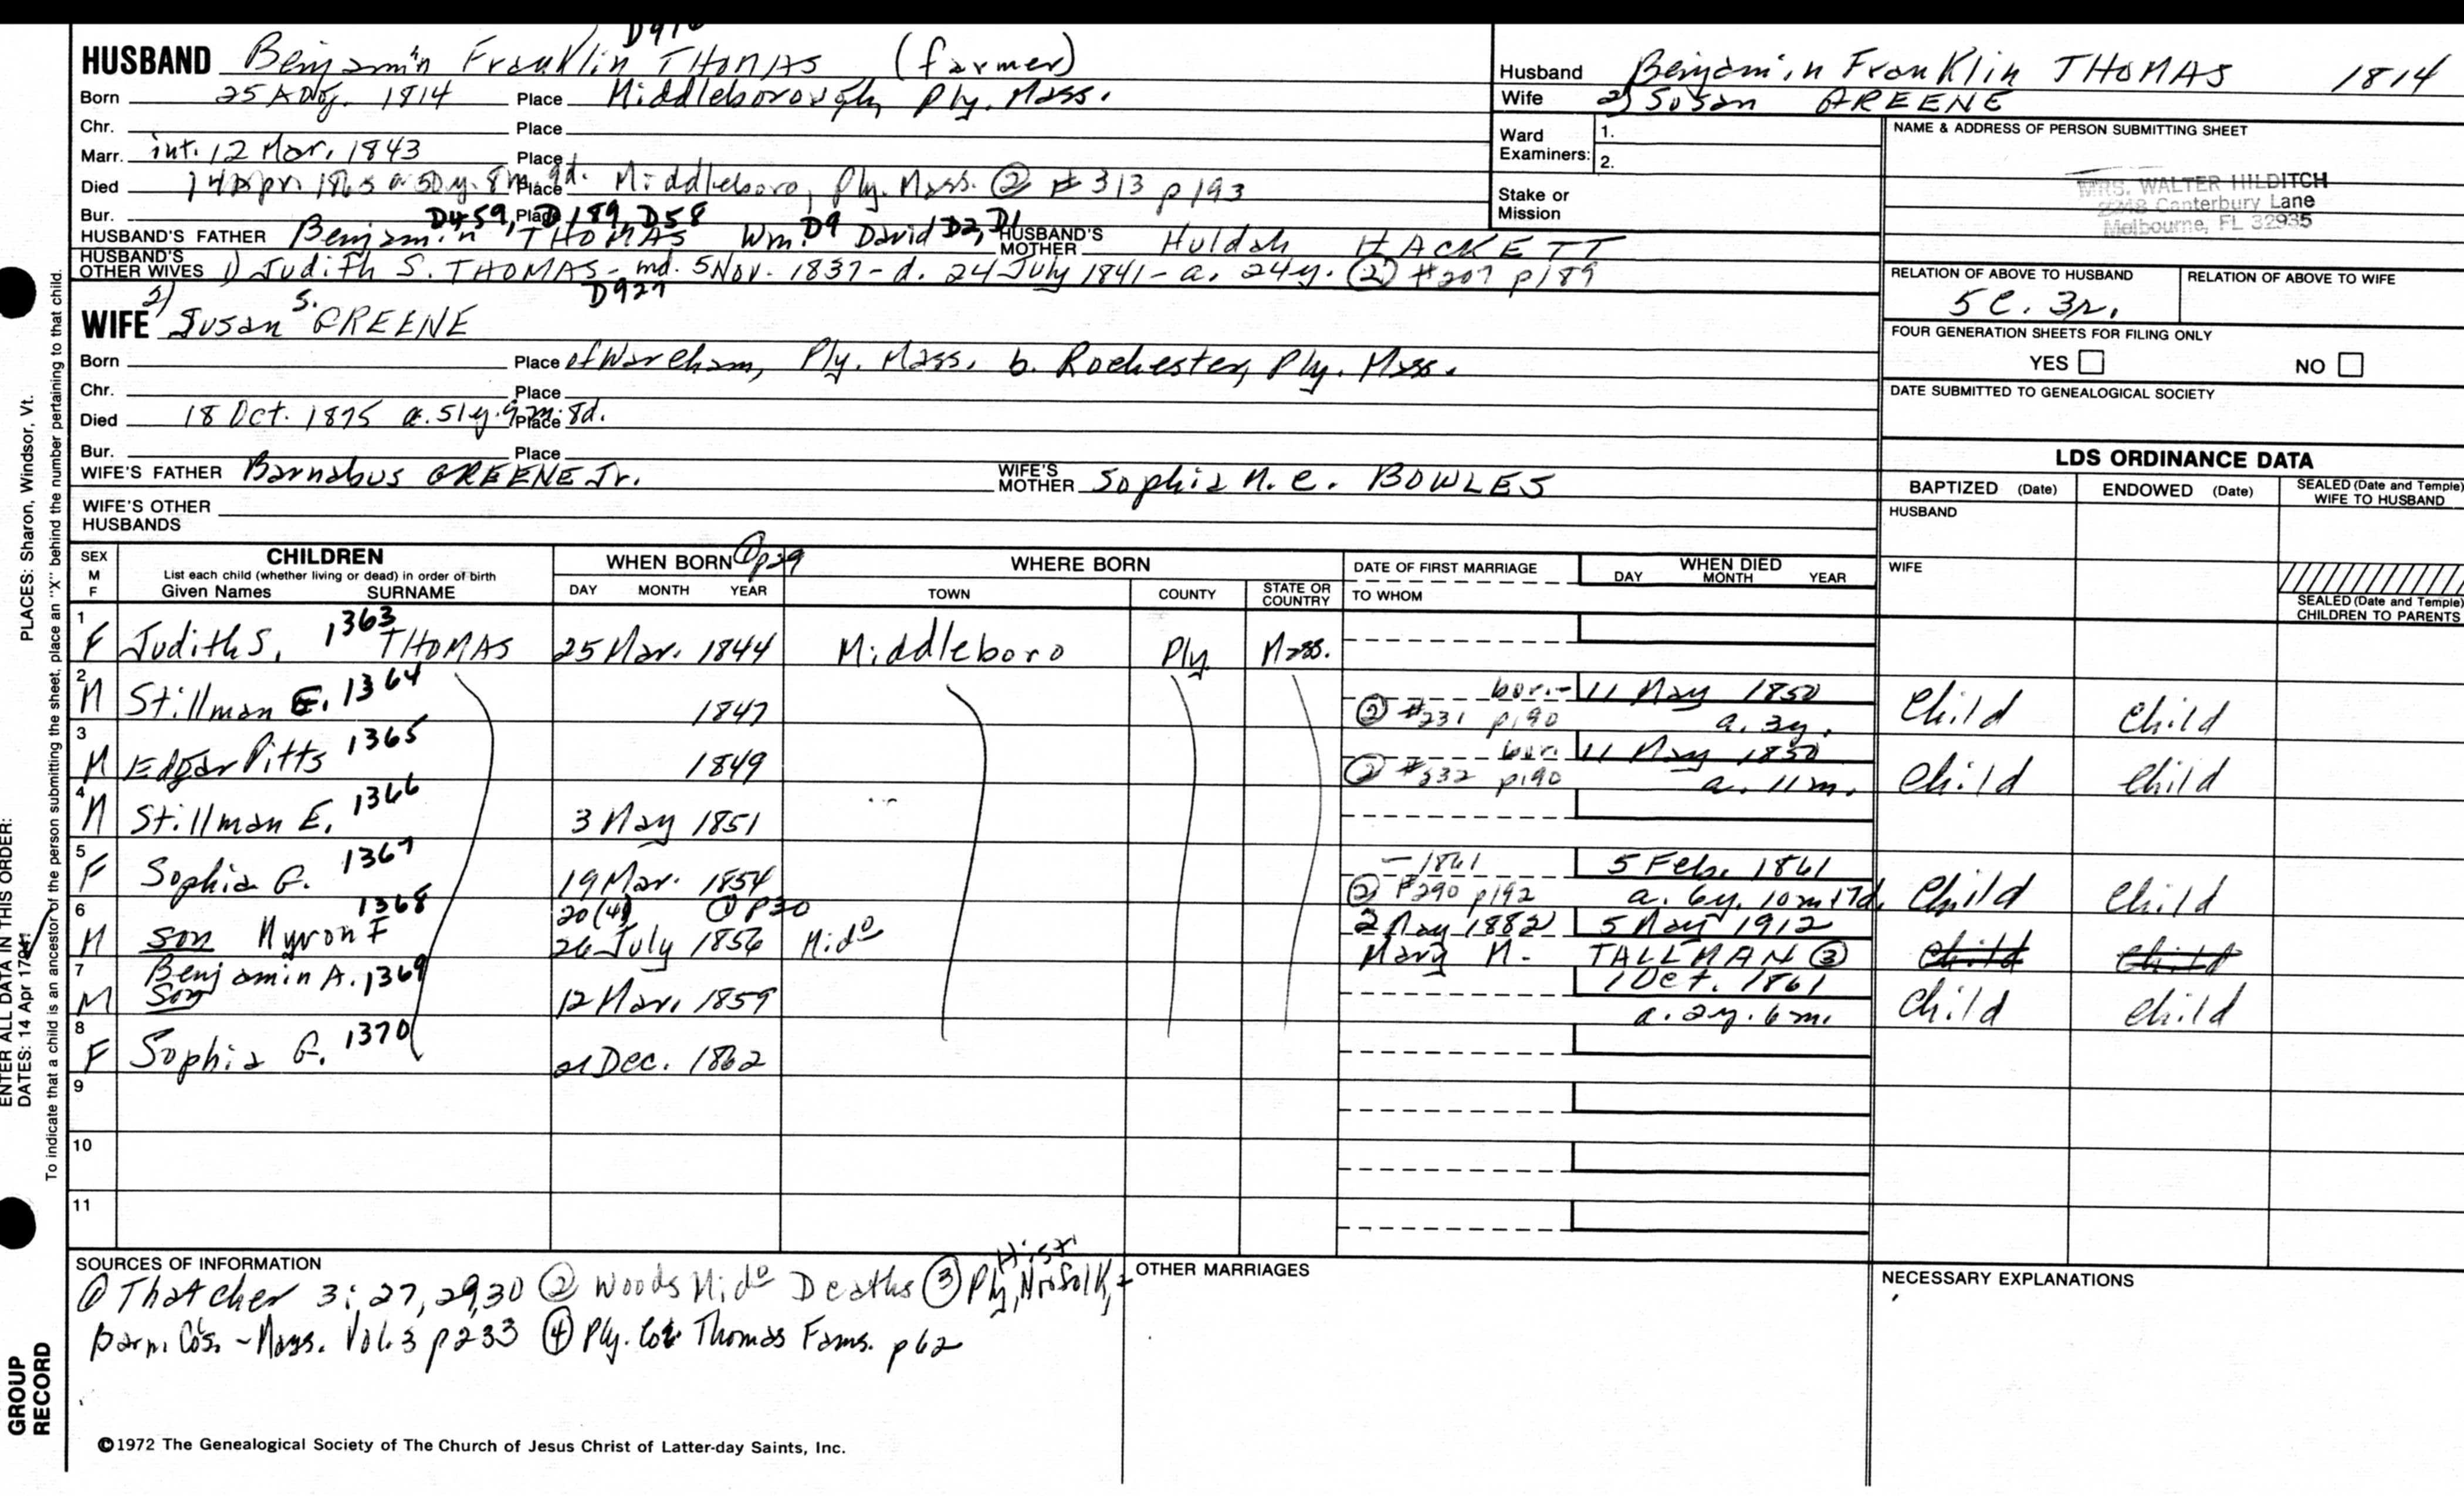 HUSBAND Benjamin Franklin THOMAS (farmer)
Born 25 Aug. 1814 Place Middleborough, Ply. Mass.
Chr. Place
Marr. int. 12 Mar. 1843 Place
Died 14 Apr. 1865 a. 50y. 8m. 9d. Place Middleboro, Ply. Mass. ② #313 p193
Bur. Place
D459, D189, D58 D9 D2, D1
HUSBAND'S FATHER Benjamin THOMAS Wm. David HUSBAND'S MOTHER Huldah HACKETT
HUSBAND'S OTHER WIVES 1) Judith S. THOMAS - md. 5 Nov. 1837 - d. 24 July 1841 - a. 24y. ② #207 p189
D927
WIFE 2) Susan S. GREENE
Born Place of Wareham, Ply. Mass. b. Rochester, Ply. Mass.
Chr. Place
Died 18 Oct. 1875 a. 51y. 9m. 8d. Place
Bur. Place
WIFE'S FATHER Barnabus GREENE Jr. WIFE'S MOTHER Sophia N. C. BOWLES
WIFE'S OTHER HUSBANDS
Husband Benjamin Franklin THOMAS 1814
Wife 2) Susan GREENE
Ward Examiners: 1.
2.
Stake or Mission
NAME & ADDRESS OF PERSON SUBMITTING SHEET
MRS. WALTER HILDITCH
Canterbury Lane
Melbourne, FL 32935
RELATION OF ABOVE TO HUSBAND RELATION OF ABOVE TO WIFE
5C. 3r.
FOUR GENERATION SHEETS FOR FILING ONLY
YES NO
DATE SUBMITTED TO GENEALOGICAL SOCIETY
LDS ORDINANCE DATA
BAPTIZED (Date) ENDOWED (Date) SEALED (Date and Temple) WIFE TO HUSBAND
HUSBAND
WIFE
SEALED (Date and Temple) CHILDREN TO PARENTS
SEX M F CHILDREN WHEN BORN ① p29 WHERE BORN DATE OF FIRST MARRIAGE WHEN DIED
List each child (whether living or dead) in order of birth
Given Names SURNAME DAY MONTH YEAR TOWN COUNTY STATE OR COUNTRY TO WHOM DAY MONTH YEAR
1 F Judith S. 1363 THOMAS 25 Mar. 1844 Middleboro Ply. Mass.
2 M Stillman E. 1364 1847 bur. 11 May 1850 Child Child
② #231 p190 a. 3y.
3 M Edgar Pitts 1365 1849 bur. 11 May 1850 Child Child
② #232 p190 a. 11m.
4 M Stillman E. 1366 3 May 1851
5 F Sophia G. 1367 19 Mar. 1854 - 1861 5 Feb. 1861 Child Child
② #290 p192 a. 6y. 10m 17d.
6 M son Myron F 1368 20 (4) ① p30 2 May 1882 5 May 1912
26 July 1856 Mido Mary M. TALLMAN ③ Child Child
7 M Benjamin A. 1369 1 Oct. 1861
Son 12 Mar. 1859 a. 2y. 6m. Child Child
8 F Sophia G. 1370 21 Dec. 1862
9
10
11
SOURCES OF INFORMATION
① Thatcher 3: 27, 29, 30 ② Woods Mido Deaths ③ Hist Ply, Norfolk, +
Barn. Cos. - Mass. Vol. 3 p233 ④ Ply. Col. Thomas Fams. p62
OTHER MARRIAGES
NECESSARY EXPLANATIONS
©1972 The Genealogical Society of The Church of Jesus Christ of Latter-day Saints, Inc.
PLACES: Sharon, Windsor, Vt.
ENTER ALL DATA IN THIS ORDER:
DATES: 14 Apr 1794
To indicate that a child is an ancestor of the person submitting the sheet, place an "X" behind the number pertaining to that child.
GROUP RECORD